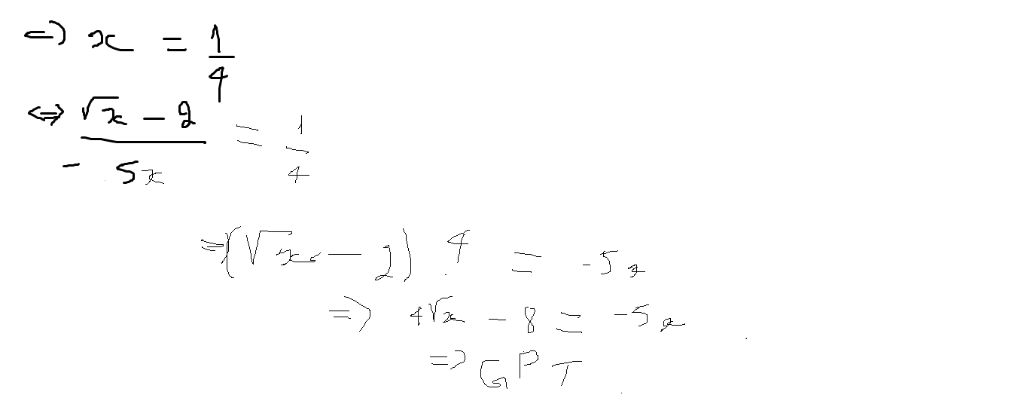 => x = 1/4
<=> (√x - 2)/(- 5x) = 1/4
=> (√x - 2) . 4 = -5x
=> 4√x - 8 = -5x
=> GPT